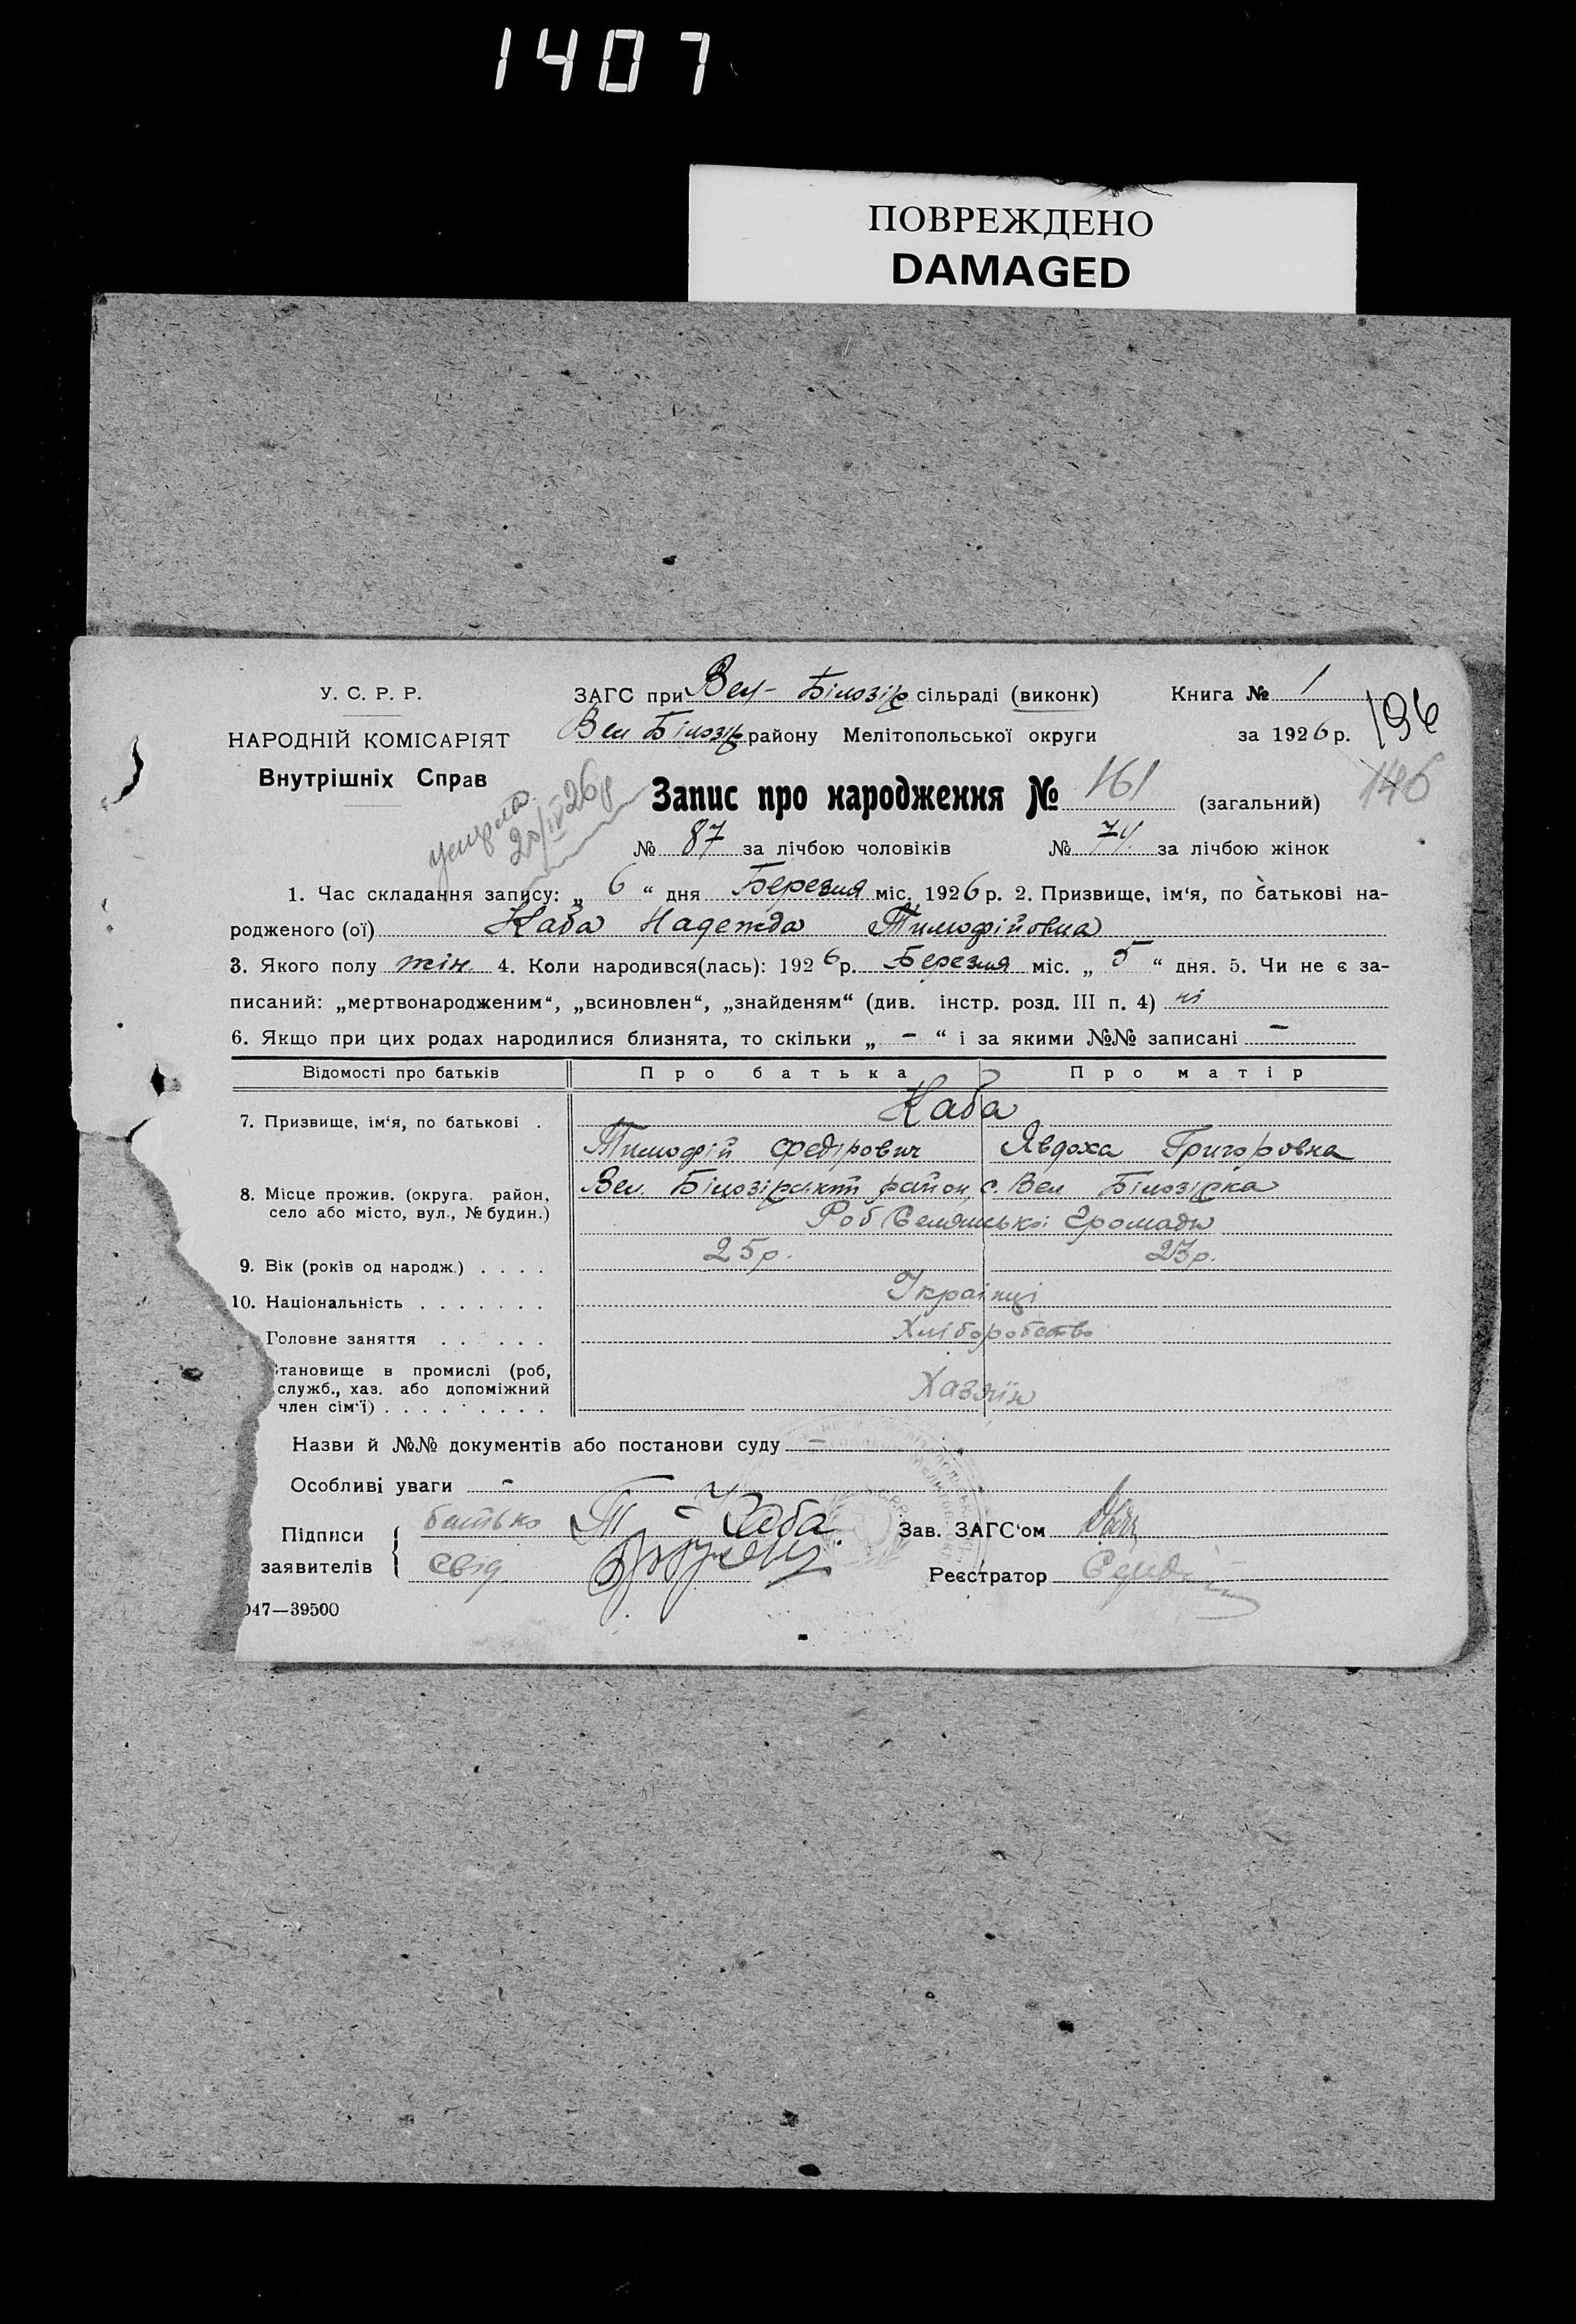 1407
ПОВРЕЖДЕНО
DAMAGED
У. С. Р. Р.
НАРОДНІЙ КОМІСАРІЯТ
Внутрішніх Справ
ЗАГС при Вел- Білозір сільраді (виконк)
Вел Білозір району Мелітопольської округи
Книга № 1
за 1926 р.
196
146
умерла
20/IV 26 р
Запис про народження № 161 (загальний)
№ 87 за лічбою чоловіків № 74 за лічбою жінок
1. Час складання запису: „ 6 “ дня Березня міс. 1926 р. 2. Призвище, ім‘я, по батькові на-
родженого (ої) Каба Надежда Тимофійовна
3. Якого полу жін. 4. Коли народився(лась): 1926 р. Березня міс. „ 5 “ дня. 5. Чи не є за-
писаний: „мертвонародженим“, „всиновлен“, „знайденям“ (див. інстр. розд. III п. 4) ні
6. Якщо при цих родах народилися близнята, то скільки „ - “ і за якими №№ записані -
Відомості про батьків Про батька Про матір
7. Призвище, ім‘я, по батькові .
Каба
Тимофій Федірович Явдоха Григоровна
8. Місце прожив. (округа. район,
село або місто, вул., № будин.)
Вел. Білозірський район, с. Вел Білозірка
Роб Селянської Громади
9. Вік (років од народж.) . . . . 25 р. 23 р.
10. Національність . . . . . . . Українці
Головне заняття . . . . . . Хліборобство
становище в промислі (роб,
служб., хаз. або допоміжний
член сім‘ї) . . . . . . . . . Хазяїн
Назви й №№ документів або постанови суду -
Особливі уваги -
Підписи
заявителів
батько Т - Каба
свід
Зав. ЗАГС‘ом
Реєстратор
047—39500